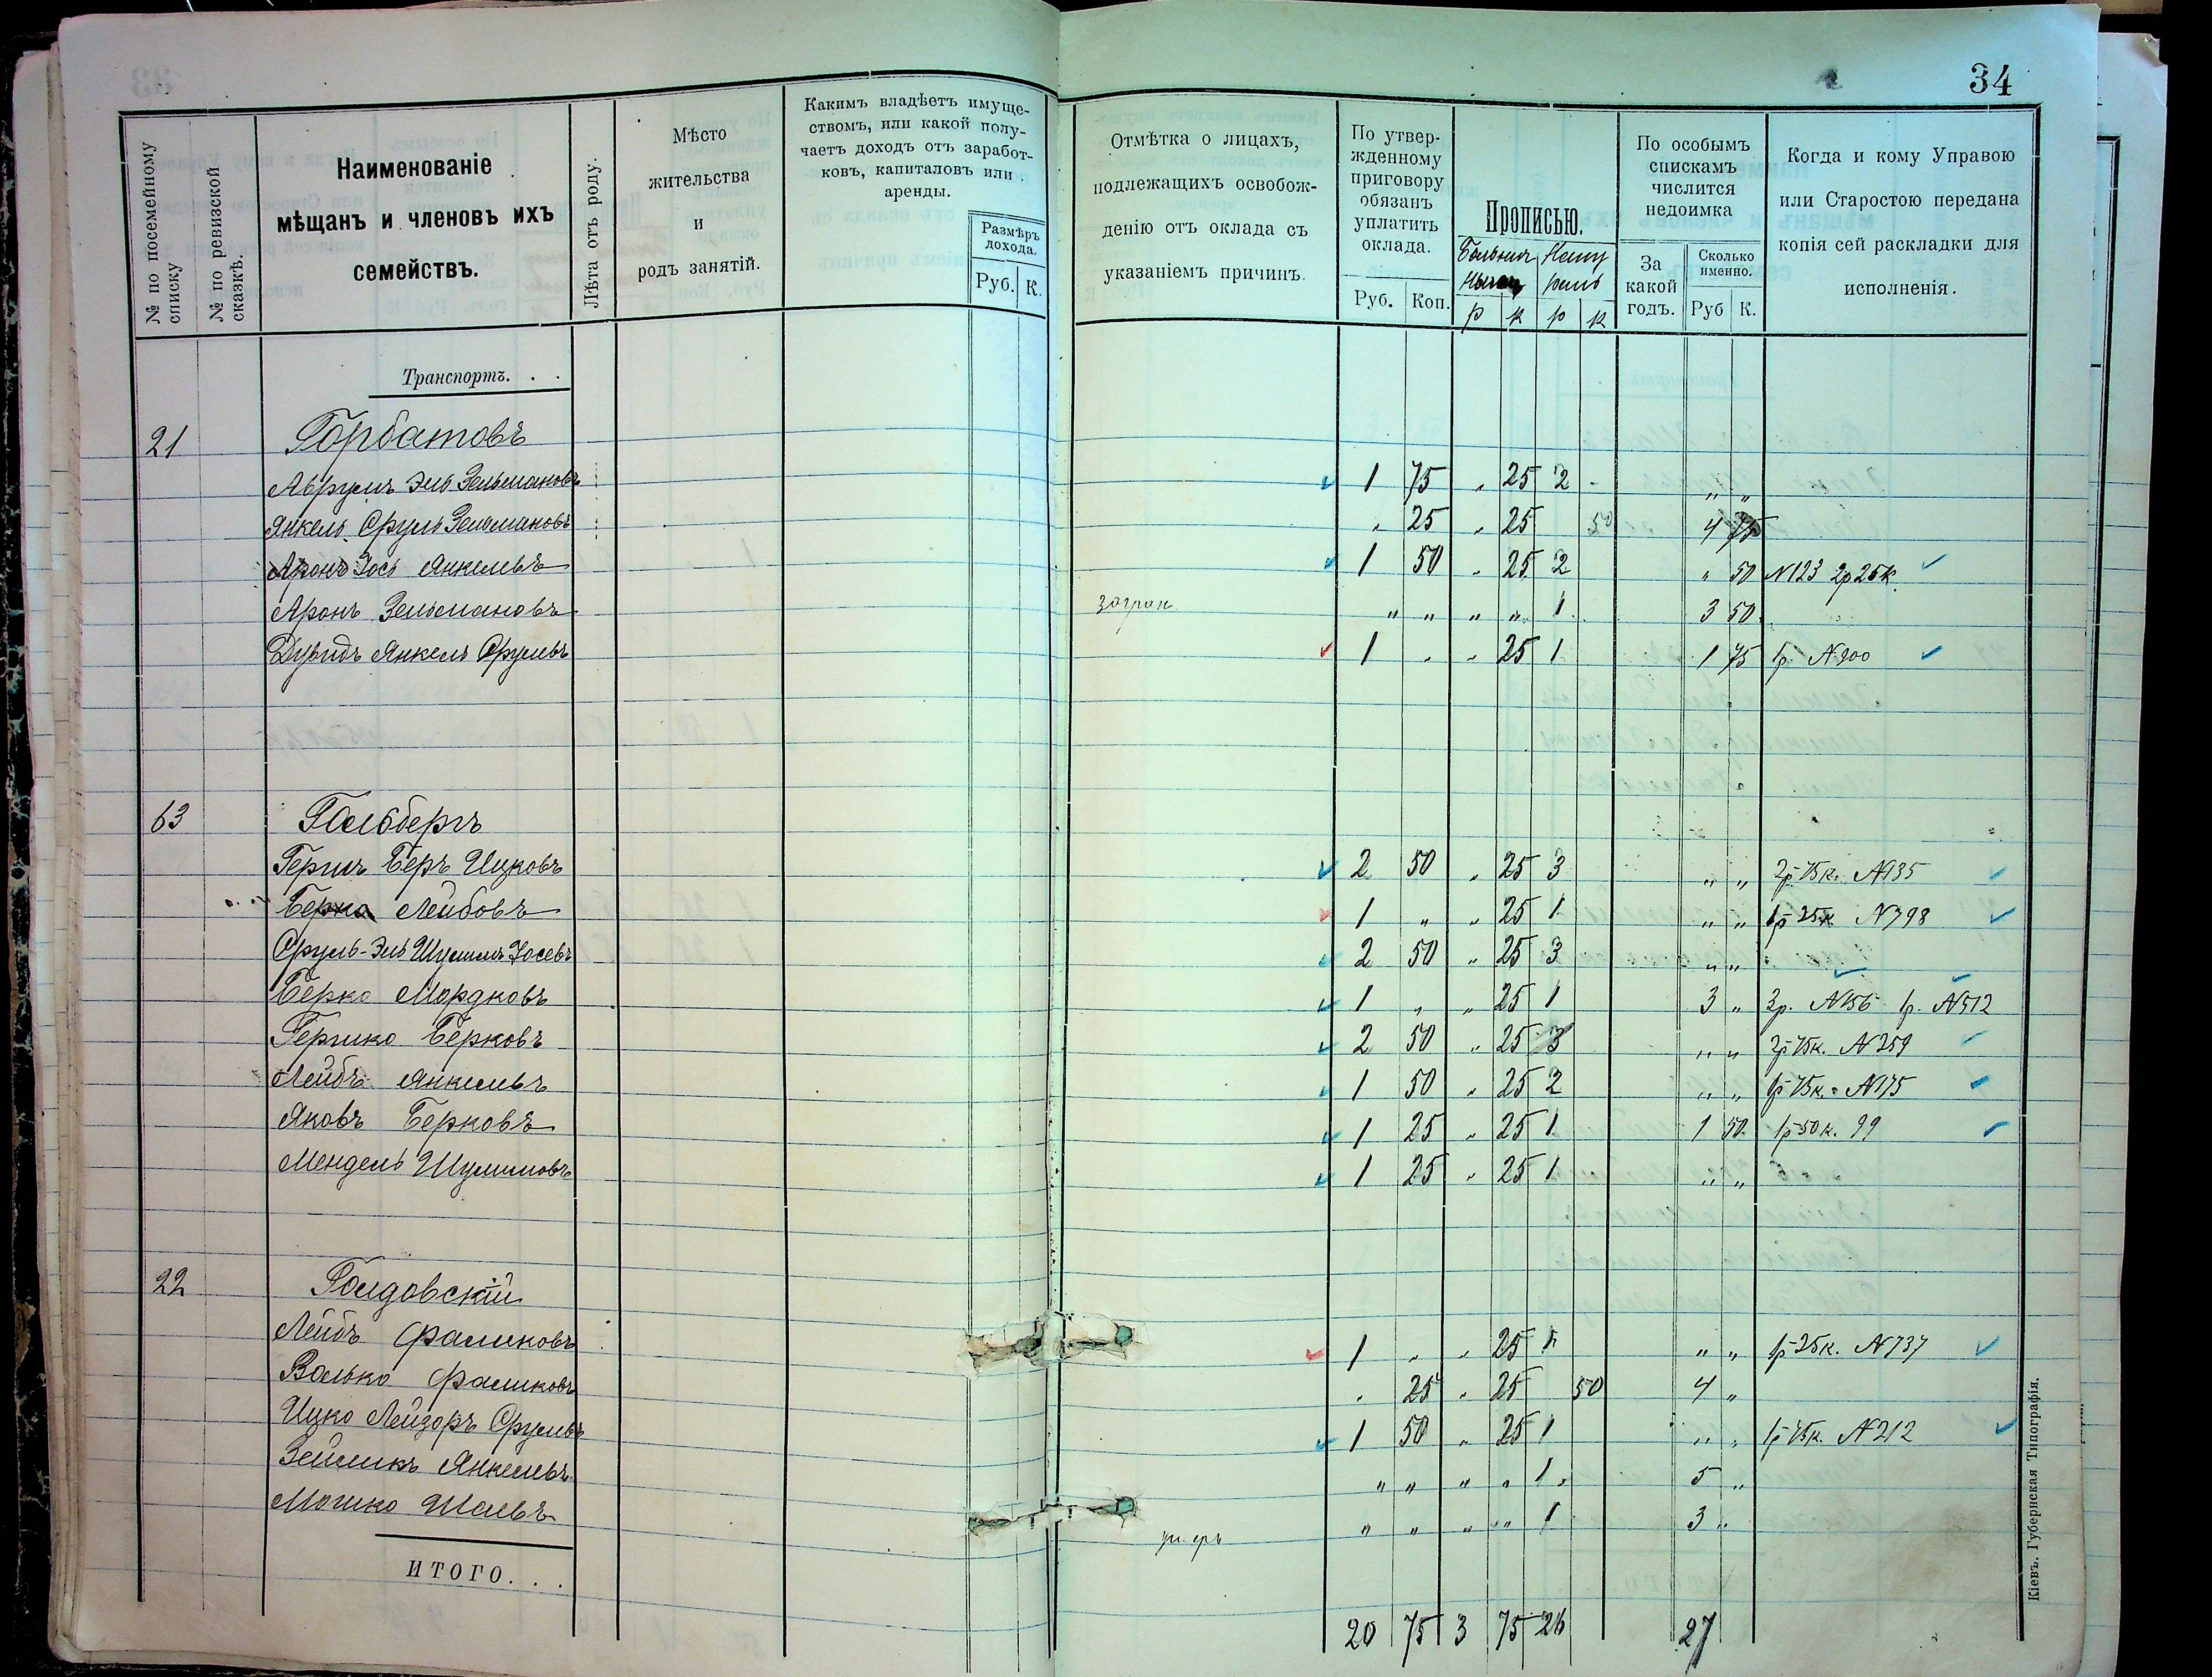 34
№ по посемейному списку
№ по ревизской сказкѣ.
Наименованіе
мѣщанъ и членовъ ихъ
семействъ.
Лѣта отъ роду.
Мѣсто
жительства
и
родъ занятій.
Какимъ владѣетъ имуще-
ствомъ, или какой полу-
чаетъ доходъ отъ заработ-
ковъ, капиталовъ или
аренды.
Размѣръ
дохода.
Руб. К.
Отмѣтка о лицахъ,
подлежащихъ освобож-
денію отъ оклада съ
указаніемъ причинъ.
По утвер-
жденному
приговору
обязанъ
уплатить
оклада.
Руб. Коп.
Прописью.
р к р к
По особымъ
спискамъ
числится
недоимка
За
какой
годъ.
Сколько
именно.
Руб К.
Когда и кому Управою
или Старостою передана
копія сей раскладки для
исполненія.
Транспортъ. . .
21 Горбатовъ
Аврумъ Эль Зельмановъ 1 75 „ 25 2 - „ „
Янкель Сруль Зельмановъ „ 25 „ 25 50 4 75
Аронъ Іось Янкелевъ 1 50 „ 25 2 „ 50 №123 2р 25к.
Аронъ Зельмановъ загран. „ „ „ „ 1 3 50
Дувидъ Янкель Срулевъ 1 „ „ 25 1 1 75 1р. №900
63 Гольбергъ
Гершъ Беръ Ицковъ 2 50 „ 25 3 „ „ 2р 75к. №135
Берко Лейбовъ 1 „ „ 25 1 „ „ 1р 25к №398
Сруль-Эль Шулимъ Іосевъ 2 50 „ 25 3 „ „
Берко Мордковъ 1 „ „ 25 1 3 „ 3р. №156 1р. №512
Гершко Берковъ 2 50 „ 25 3 „ „ 2р 75к. №259
Лейбъ Янкелевъ 1 50 „ 25 2 „ „ 1р 75к. №175
Яковъ Берковъ 1 25 „ 25 1 1 50 1р 50к. 99
Мендель Шулимовъ 1 25 „ 25 1 „ „
22 Голдовскій
Лейбъ Фаликовъ 1 „ „ 25 1 „ „ 1р 25к. №737
Волько Фаликовъ „ 25 „ 25 50 4 „
Ицко Лейзоръ Срулевъ 1 50 „ 25 1 „ „ 1р 75к. №212
Зейликъ Янкелевъ „ „ „ „ 1 5 „
Мошко Шаевъ „ „ „ „ 1 3 „
ИТОГО. . .
20 75 3 75 26 27
Кіевъ. Губернская Типографія.